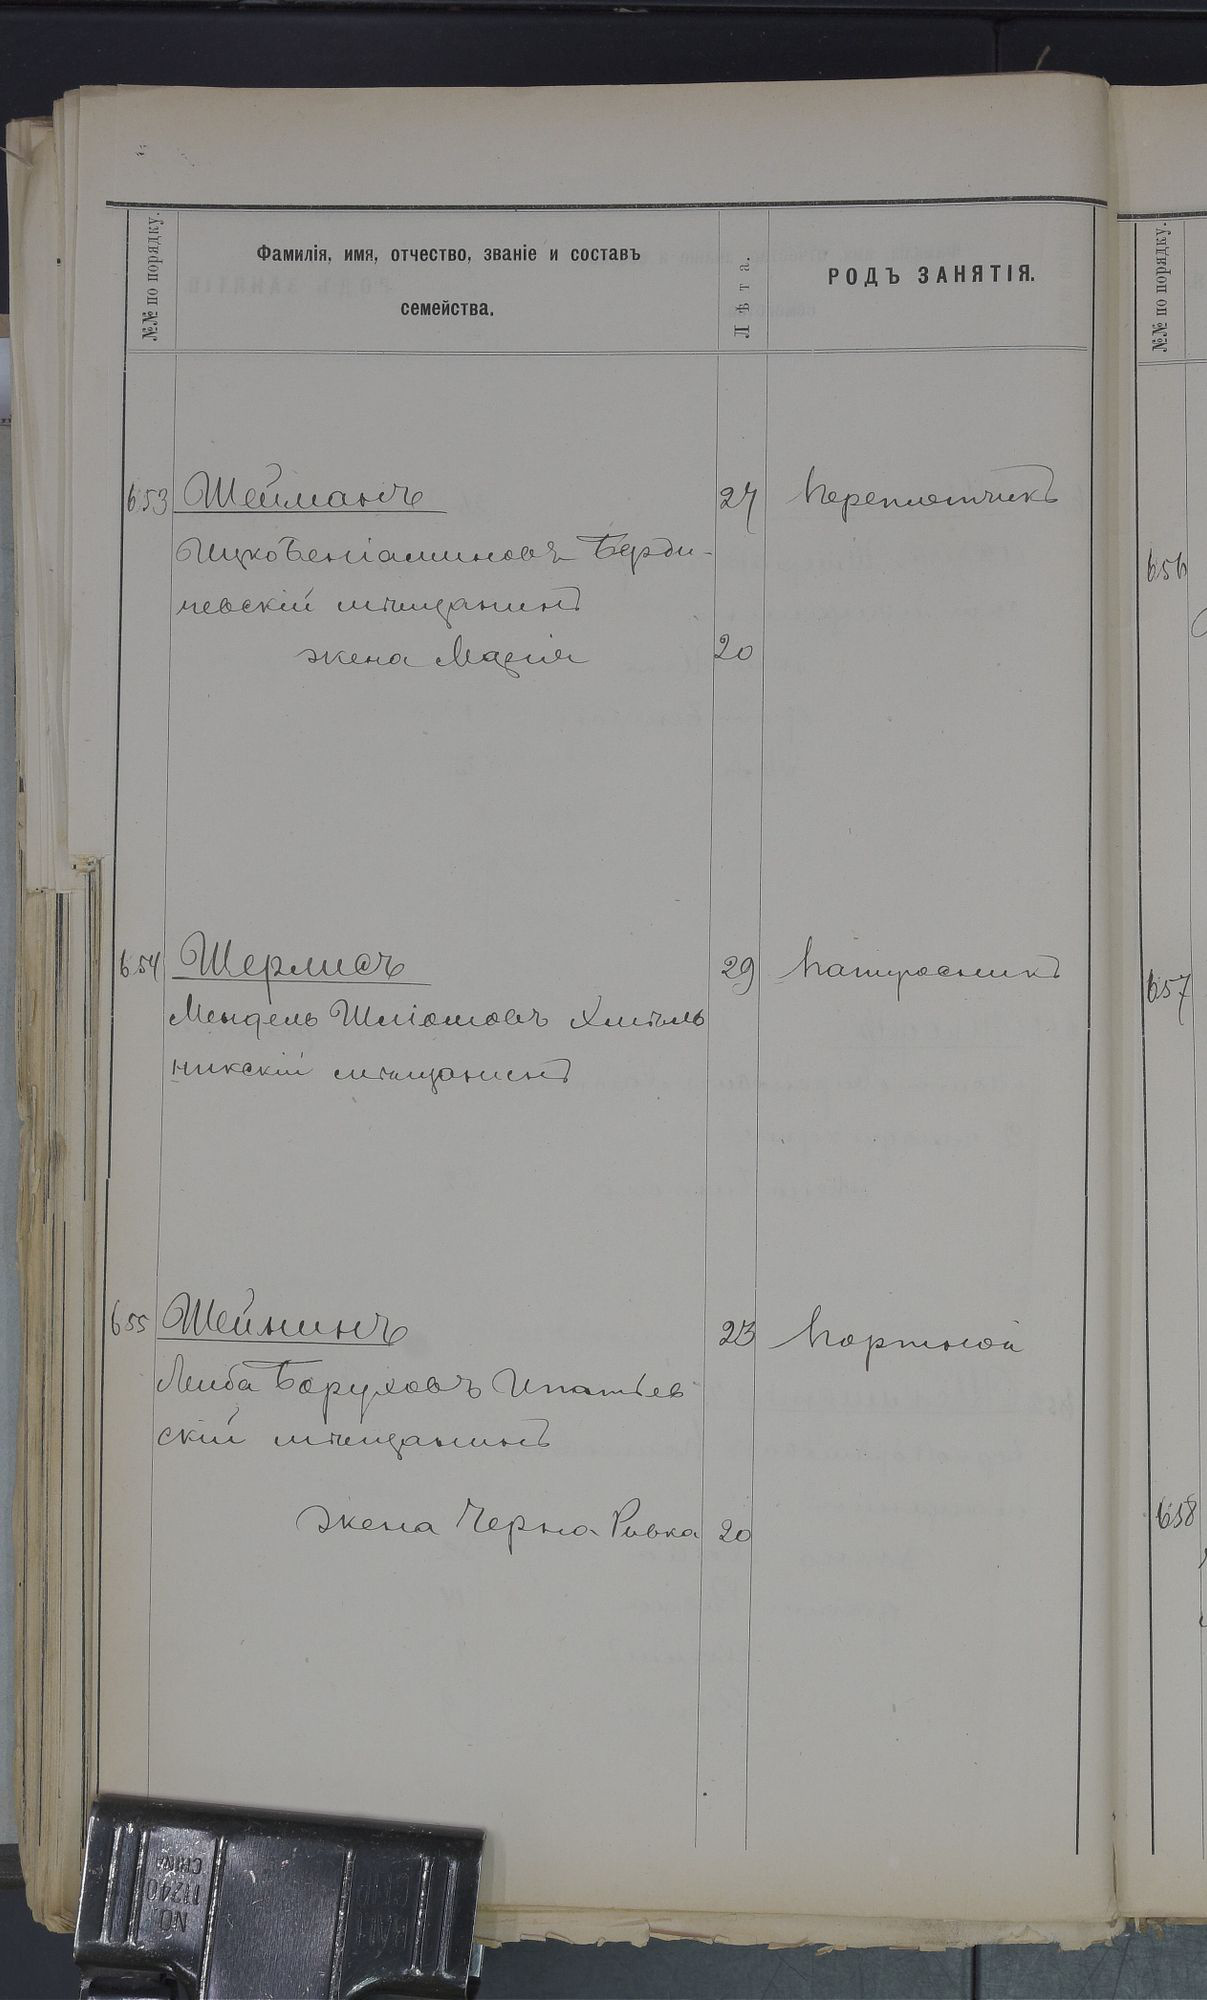 №№ по порядку.
Фамилія, имя, отчество, званіе и составъ
семейства.
Лѣта.
РОДЪ ЗАНЯТІЯ.
№№ по порядку.
653 Шейманъ 27 Переплетчикъ
Ицко Беніаминовъ Берди-
чевскій мѣщанинъ
жена Марія 20
654 Шермисъ 29 Папиросникъ
Мендель Шліомовъ Хмѣль
никскій мѣщанинъ
655 Шейнинъ 23 Портной
Лейба Боруховъ Игнатьев
скій мѣщанинъ
жена Черна Ривка 20
656
657
658
NO.
11240
CHINA